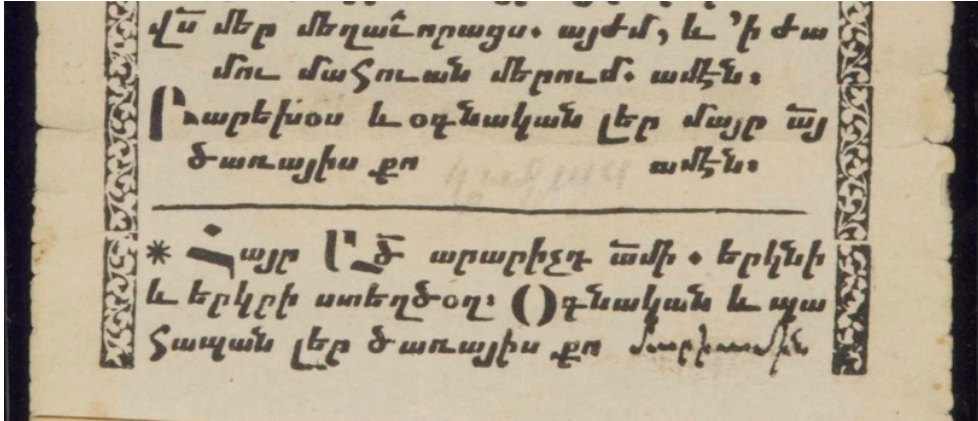 վ՟ս մեր մեղաւորացս. այժմ, և ՚ի ժա
մու մահուան մերում. ամէն։
Բարեխօս և օգնական լեր մայր ա՟յ
ծառայիս քո ամէն։
* Հայր Ա՟ծ արարիչդ ա՟մի . երկնի
և երկրի ստեղծօղ։ Օգնական և պա
հապան լեր ծառայիս քո